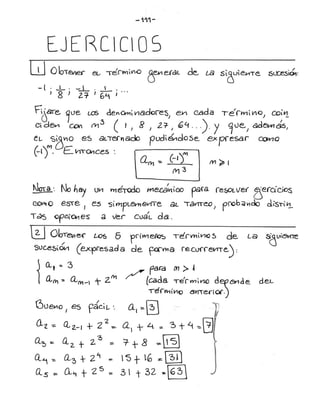 -111-
EJERCICIOS
1 Obtener el término general de la siguiente sucesión:
-1 ; 1/8 ; -1/27 ; 1/64 ; ...
Fijarse que los denominadores, en cada término, coin
ciden con m³ ( 1, 8, 27, 64 ...) y que, además,
el signo es alternado pudiéndose expresar como
(-1)^m. Entonces : a_m = (-1)^m / m³ m ≥ 1
Nota: No hay un método mecánico para resolver ejercicios
como este, es simplemente al tanteo, probando distin
tas opciones a ver cuál da.
2 Obtener los 5 primeros términos de la siguiente
sucesión (expresada de forma recurrente):
a₁ = 3
a_m = a_m-1 + 2^m para m > 1
(cada término depende del
término anterior)
Bueno, es fácil: a₁ = 3
a₂ = a₂₋₁ + 2² = a₁ + 4 = 3 + 4 = 7
a₃ = a₂ + 2³ = 7 + 8 = 15
a₄ = a₃ + 2⁴ = 15 + 16 = 31
a₅ = a₄ + 2⁵ = 31 + 32 = 63